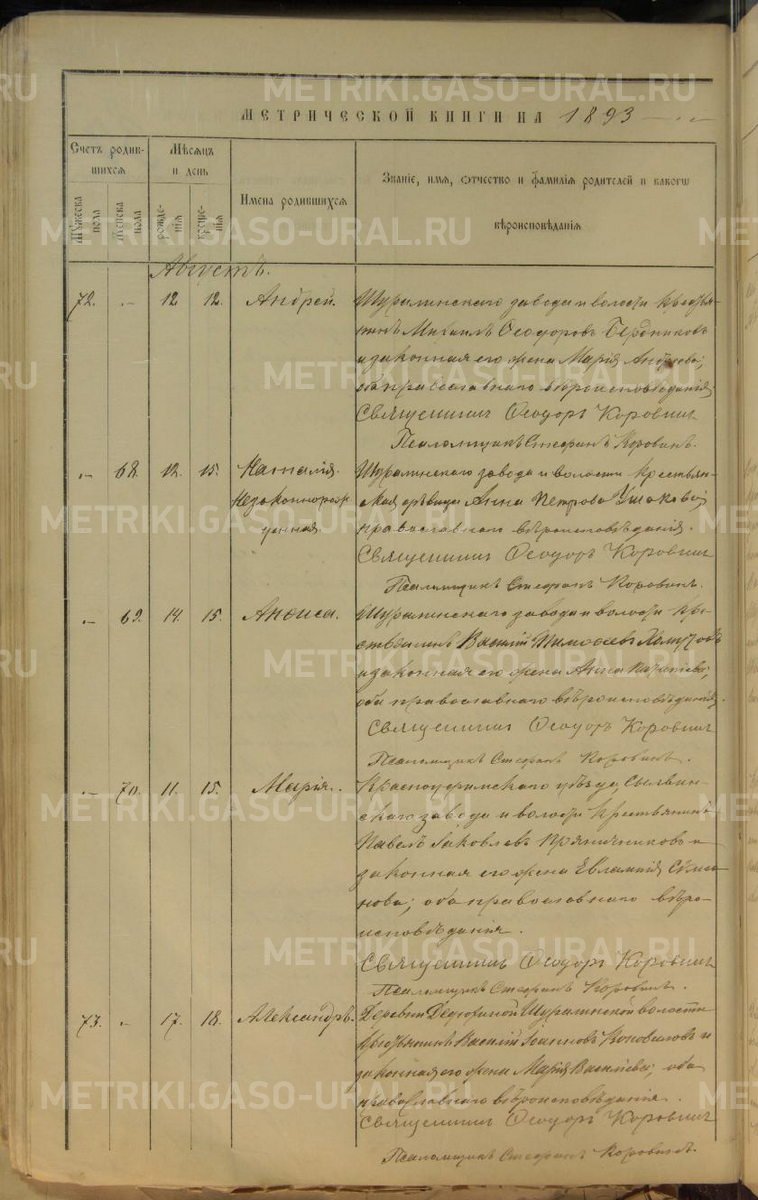 МЕТРИЧЕСКОЙ КНИГИ НА 1893
Счетъ родив-
шихся
Мѣсяцъ
и день
Имена родившихся
Званіе, имя, отчество и фамилія родителей и какогѡ
вѣроисповѣданія
Мужеска
пола
Женска
пола
рожде-
нія
креще-
нія
Августъ.
72. „ 12 12. Андрей. Шуралинскаго завода и волости крестья-
нинъ Михаилъ Ѳеодоровъ Бердниковъ
и законная его жена Марія Андреева;
оба православнаго вѣроисповѣданія.
Священникъ Ѳеодоръ Коровинъ
Псаломщикъ Стефанъ Коровинъ.
„ 68. 12. 15. Наталія. Шуралинскаго завода и волости крестьян-
незаконнорож- ская дѣвица Анна Петрова Ушакова;
денная православнаго вѣроисповѣданія.
Священникъ Ѳеодоръ Коровинъ
Псаломщикъ Стефанъ Коровинъ.
„ 69. 14. 15. Анѳиса. Шуралинскаго завода и волости кре-
стьянинъ Василій Тимоѳеевъ
и законная его жена Анна
оба православнаго вѣроисповѣданія.
Священникъ Ѳеодоръ Коровинъ
Псаломщикъ Стефанъ Коровинъ.
„ 70. 11. 15. Марія. Красноуфимскаго уѣзда Сылвин-
скаго завода и волости крестьянинъ
Павелъ Іаковлевъ Пряничниковъ и
законная его жена Евлампія Симо-
нова; оба православнаго вѣро-
исповѣданія.
Священникъ Ѳеодоръ Коровинъ
Псаломщикъ Стефанъ Коровинъ.
73. „ 17. 18. Александръ. Деревни Дедюхиной Шуралинской волости
крестьянинъ Василій Іоанновъ Коноваловъ и
законная его жена Марія Васильева; оба
православнаго вѣроисповѣданія.
Священникъ Ѳеодоръ Коровинъ
Псаломщикъ Стефанъ Коровинъ.
METRIKI.GASO-URAL.RU